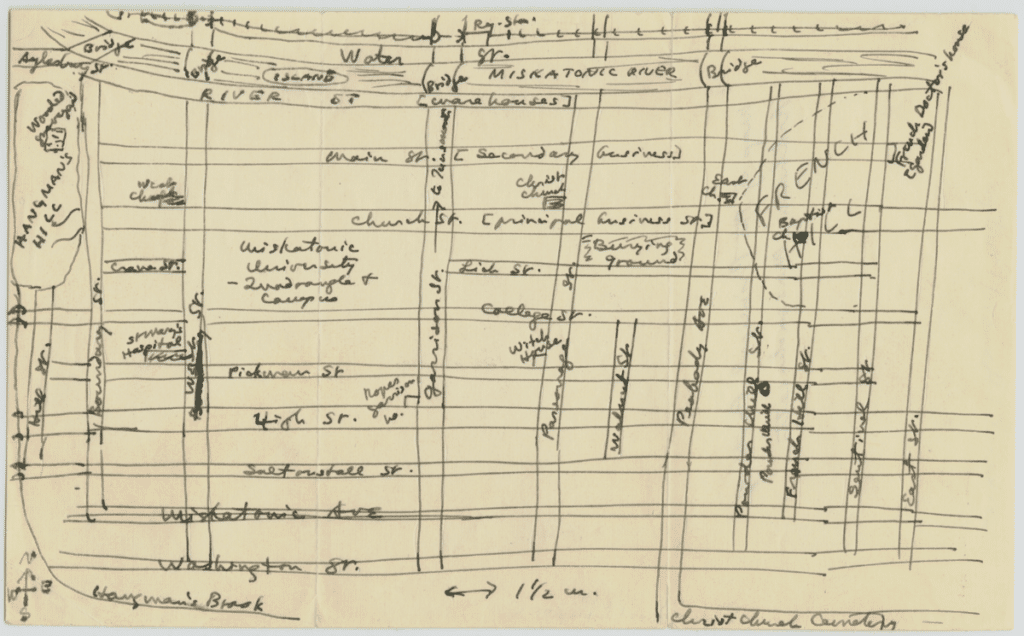 Ry. Sta.
Water St.
Bridge
Aylesbury St.
Bridge
ISLAND
Bridge
MISKATONIC RIVER
Bridge
RIVER ST [warehouses]
French Doctor's house
[garden]
Wooded
HANGMAN'S
HILL
Main St. [Secondary business]
FRENCH
HILL
Christ
Church
East
Ch.
Baptist
Ch.
Church St. [principal business st.]
Miskatonic
University
- Quadrangle &
Campus
Burying
Ground
Crane St.
Lich St.
College St.
St Mary's
Hospital
Witch
House
Pickman St
High St.
Saltonstall St.
Miskatonic Ave
Washington St.
Hill St.
Boundary St.
West St.
Garrison St.
Parsonage St.
Walnut St.
Peabody Ave
Powder Mill St.
Powder Mill
French Hill St.
Sentinel St
East St.
N
W E
S
Hangman's Brook
1 1/2 m.
Christ Church Cemetery